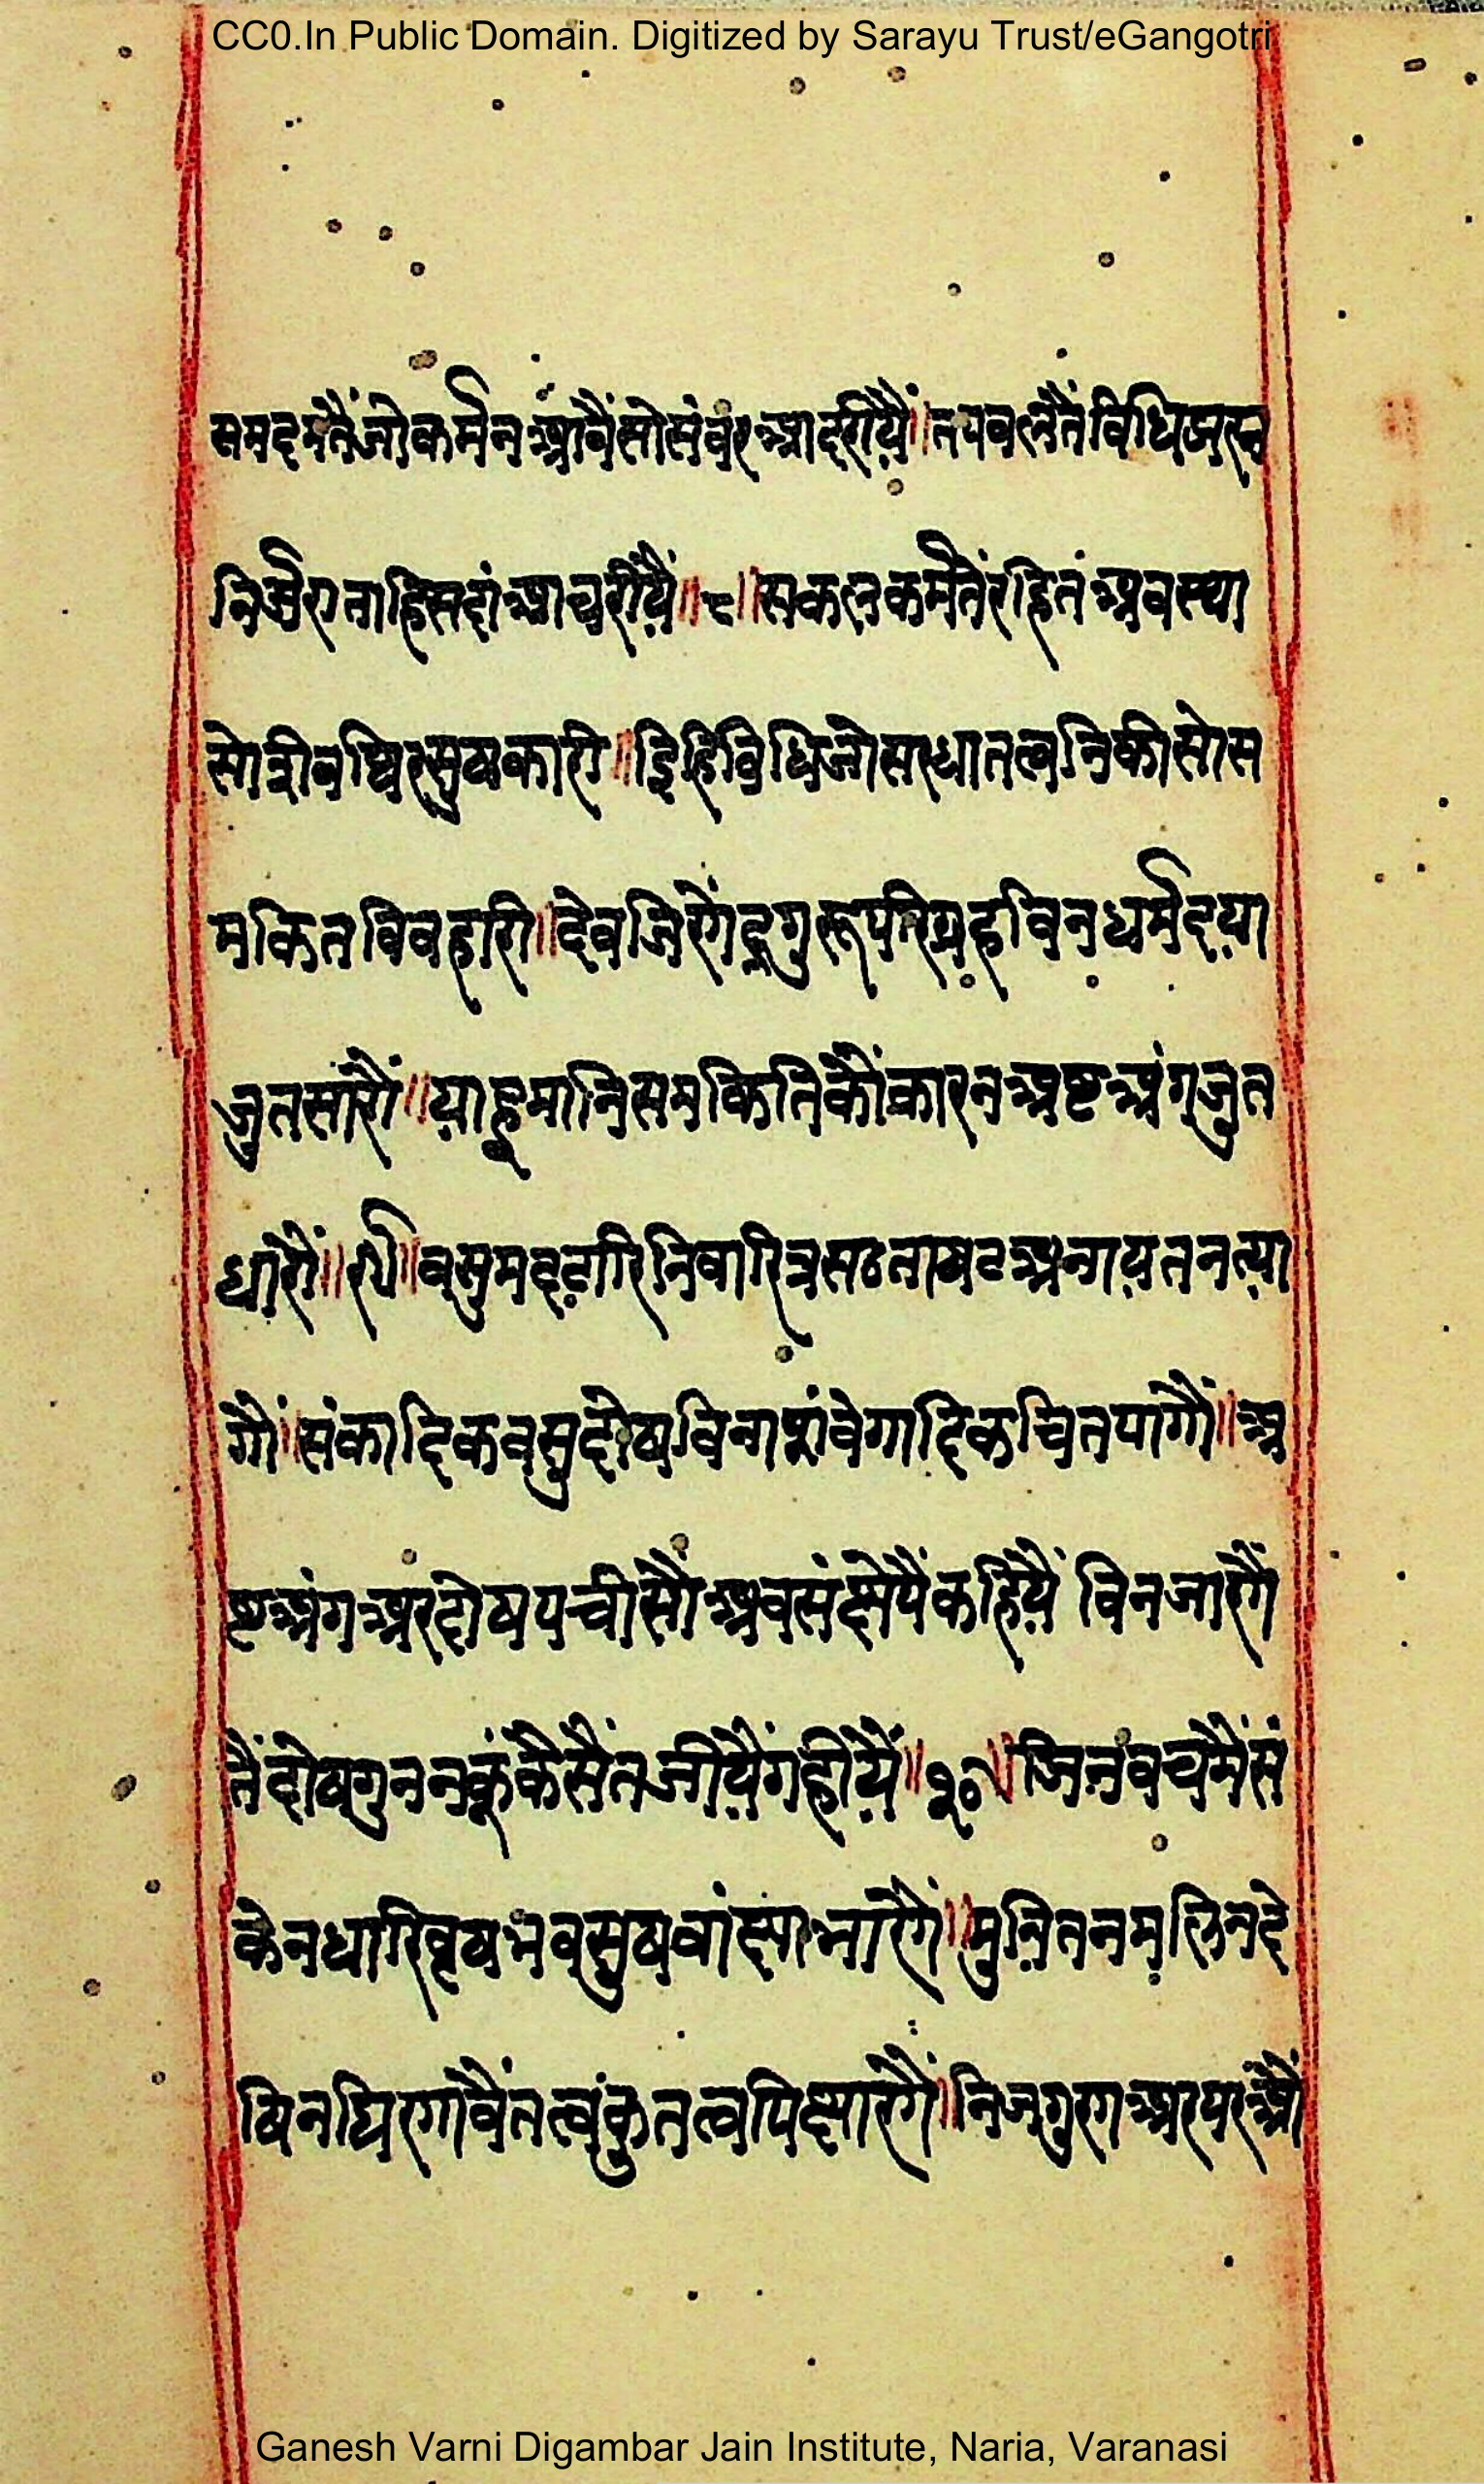 CC0.In Public Domain. Digitized by Sarayu Trust/eGangotri
समदमतैंजोकर्मनआवैंसोसंवरआदरीयैं॥तपवलतैंविधिझरन
निर्जरानाहिसदांआचरींयैं॥८॥सकलकर्मतैंरहितंअवस्था
सोशीवथिरसुषकारी॥इिहिविधिजोसरधातत्वनिकीसोस
मकितविवहारी॥देवजिरेंगेंद्रगुरूपरिग्रहविनधर्मदया
जुतसारौं॥याहूमानिसमकितिकौंकारनअष्टअंगजुत
धारौं॥९॥वसुमदटारिनिवारित्रसठताषटअनायतनत्या
गौं॥संकादिकवसुदोषविनाशंवेगादिकचितपागौं॥अ
ष्टअंगअरदोषपचीसौंअवसंक्षेपैंकहियैं विनजारगैं
तैंदोषगुननकूंकैसैंतजीयैंगहीयैं॥१०॥जिनवचमैंसं
केनधारिवृषभवसुषवांक्षाभारगैं॥मुनितनमलिनदे
षिनघिरगावैंतत्वंकुतत्वपिक्षारगैं॥निजगुरगअरपरऔं
Ganesh Varni Digambar Jain Institute, Naria, Varanasi